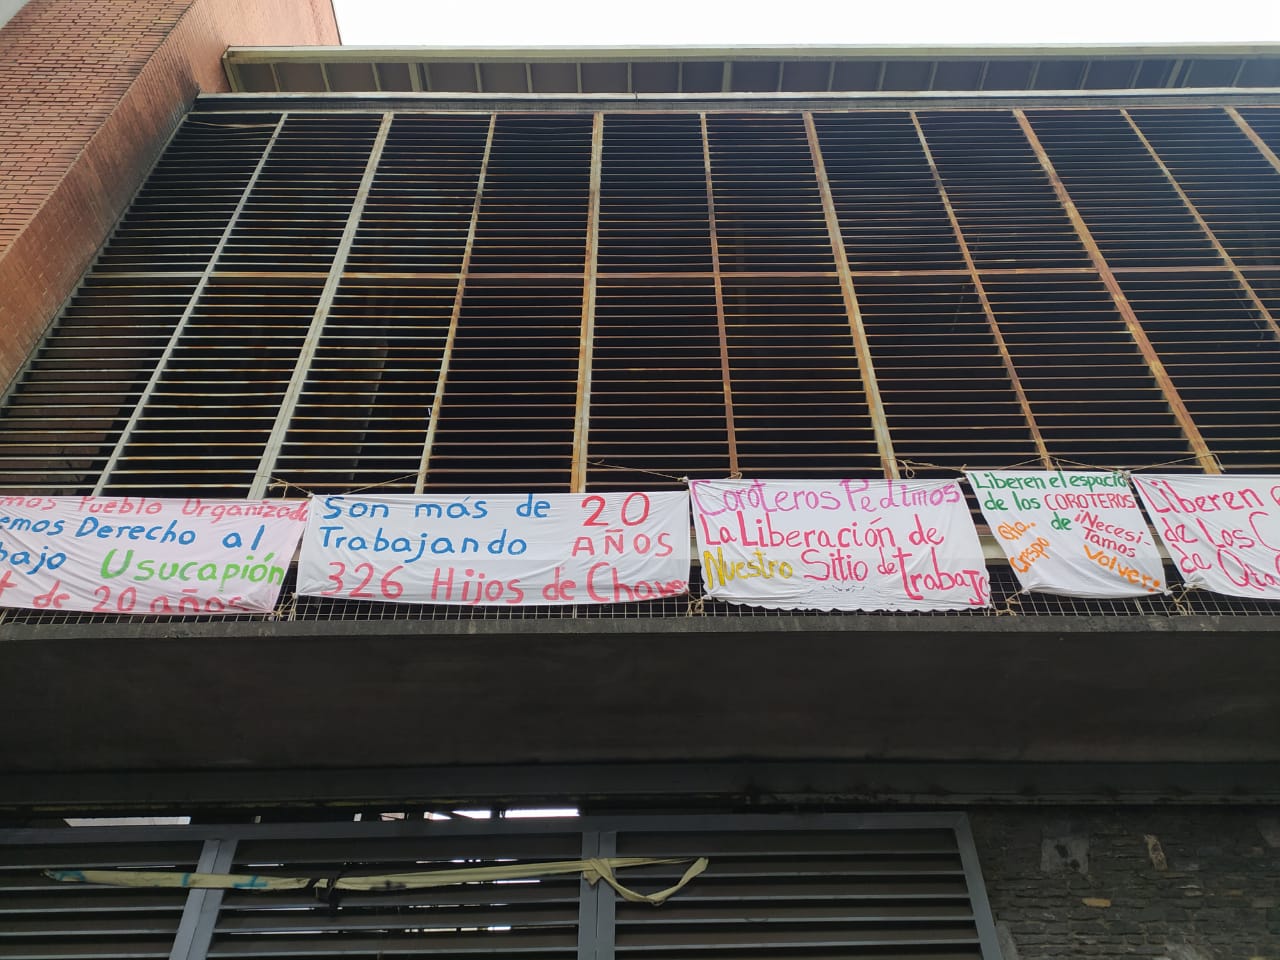 Pueblo Organizado
Derecho al
Usucapión
de 20 años
Son más de 20
Trabajando AÑOS
326 Hijos de
Coroteros Pedimos
La Liberación de
Nuestro Sitio de Trabajo
Liberen el espacio
de los COROTEROS
de ¡Necesi-
Qta.. Tamos
Crespo Volver!
Liberen
de Los
de